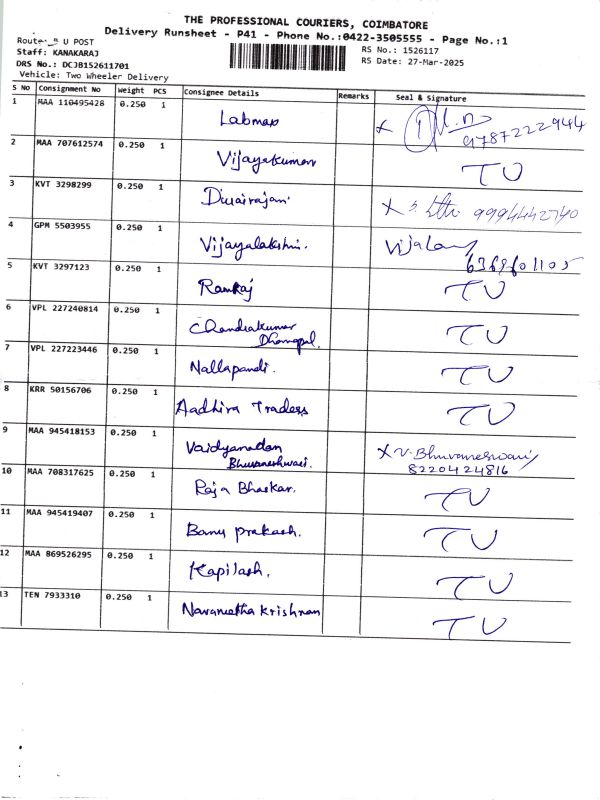 THE PROFESSIONAL COURIERS, COIMBATORE
Delivery Runsheet - P41 - Phone No.:0422-3505555 - Page No.:1
Route: U POST
RS No.: 1526117
Staff: KANAKARAJ
RS Date: 27-Mar-2025
DRS No.: DCJB152611701
Vehicle: Two Wheeler Delivery
S No Consignment No Weight PCS Consignee Details Remarks Seal & Signature
1 MAA 110495428 0.250 1 Labmax X 9787222944
2 MAA 707612574 0.250 1 Vijayakumar TU
3 KVT 3298299 0.250 1 Duairajan. X 9994442740
4 GPM 5503955 0.250 1 Vijayalakshmi. Vijalay
6369601105
5 KVT 3297123 0.250 1 Ramraj TU
6 VPL 227240814 0.250 1 Chandrakumar TU
Dhanapal.
7 VPL 227223446 0.250 1 Nallapandi. TU
8 KRR 50156706 0.250 1 Aadhira Traders TU
9 MAA 945418153 0.250 1 Vaidyanadan X V. Bhuvaneswari
Bhuvaneshwari. 8220424816
10 MAA 708317625 0.250 1 Raja Bhaskar. TU
11 MAA 945419407 0.250 1 Banu prakash. TU
12 MAA 869526295 0.250 1 Kapilash. TU
13 TEN 7933310 0.250 1 Navaneetha Krishnan TU